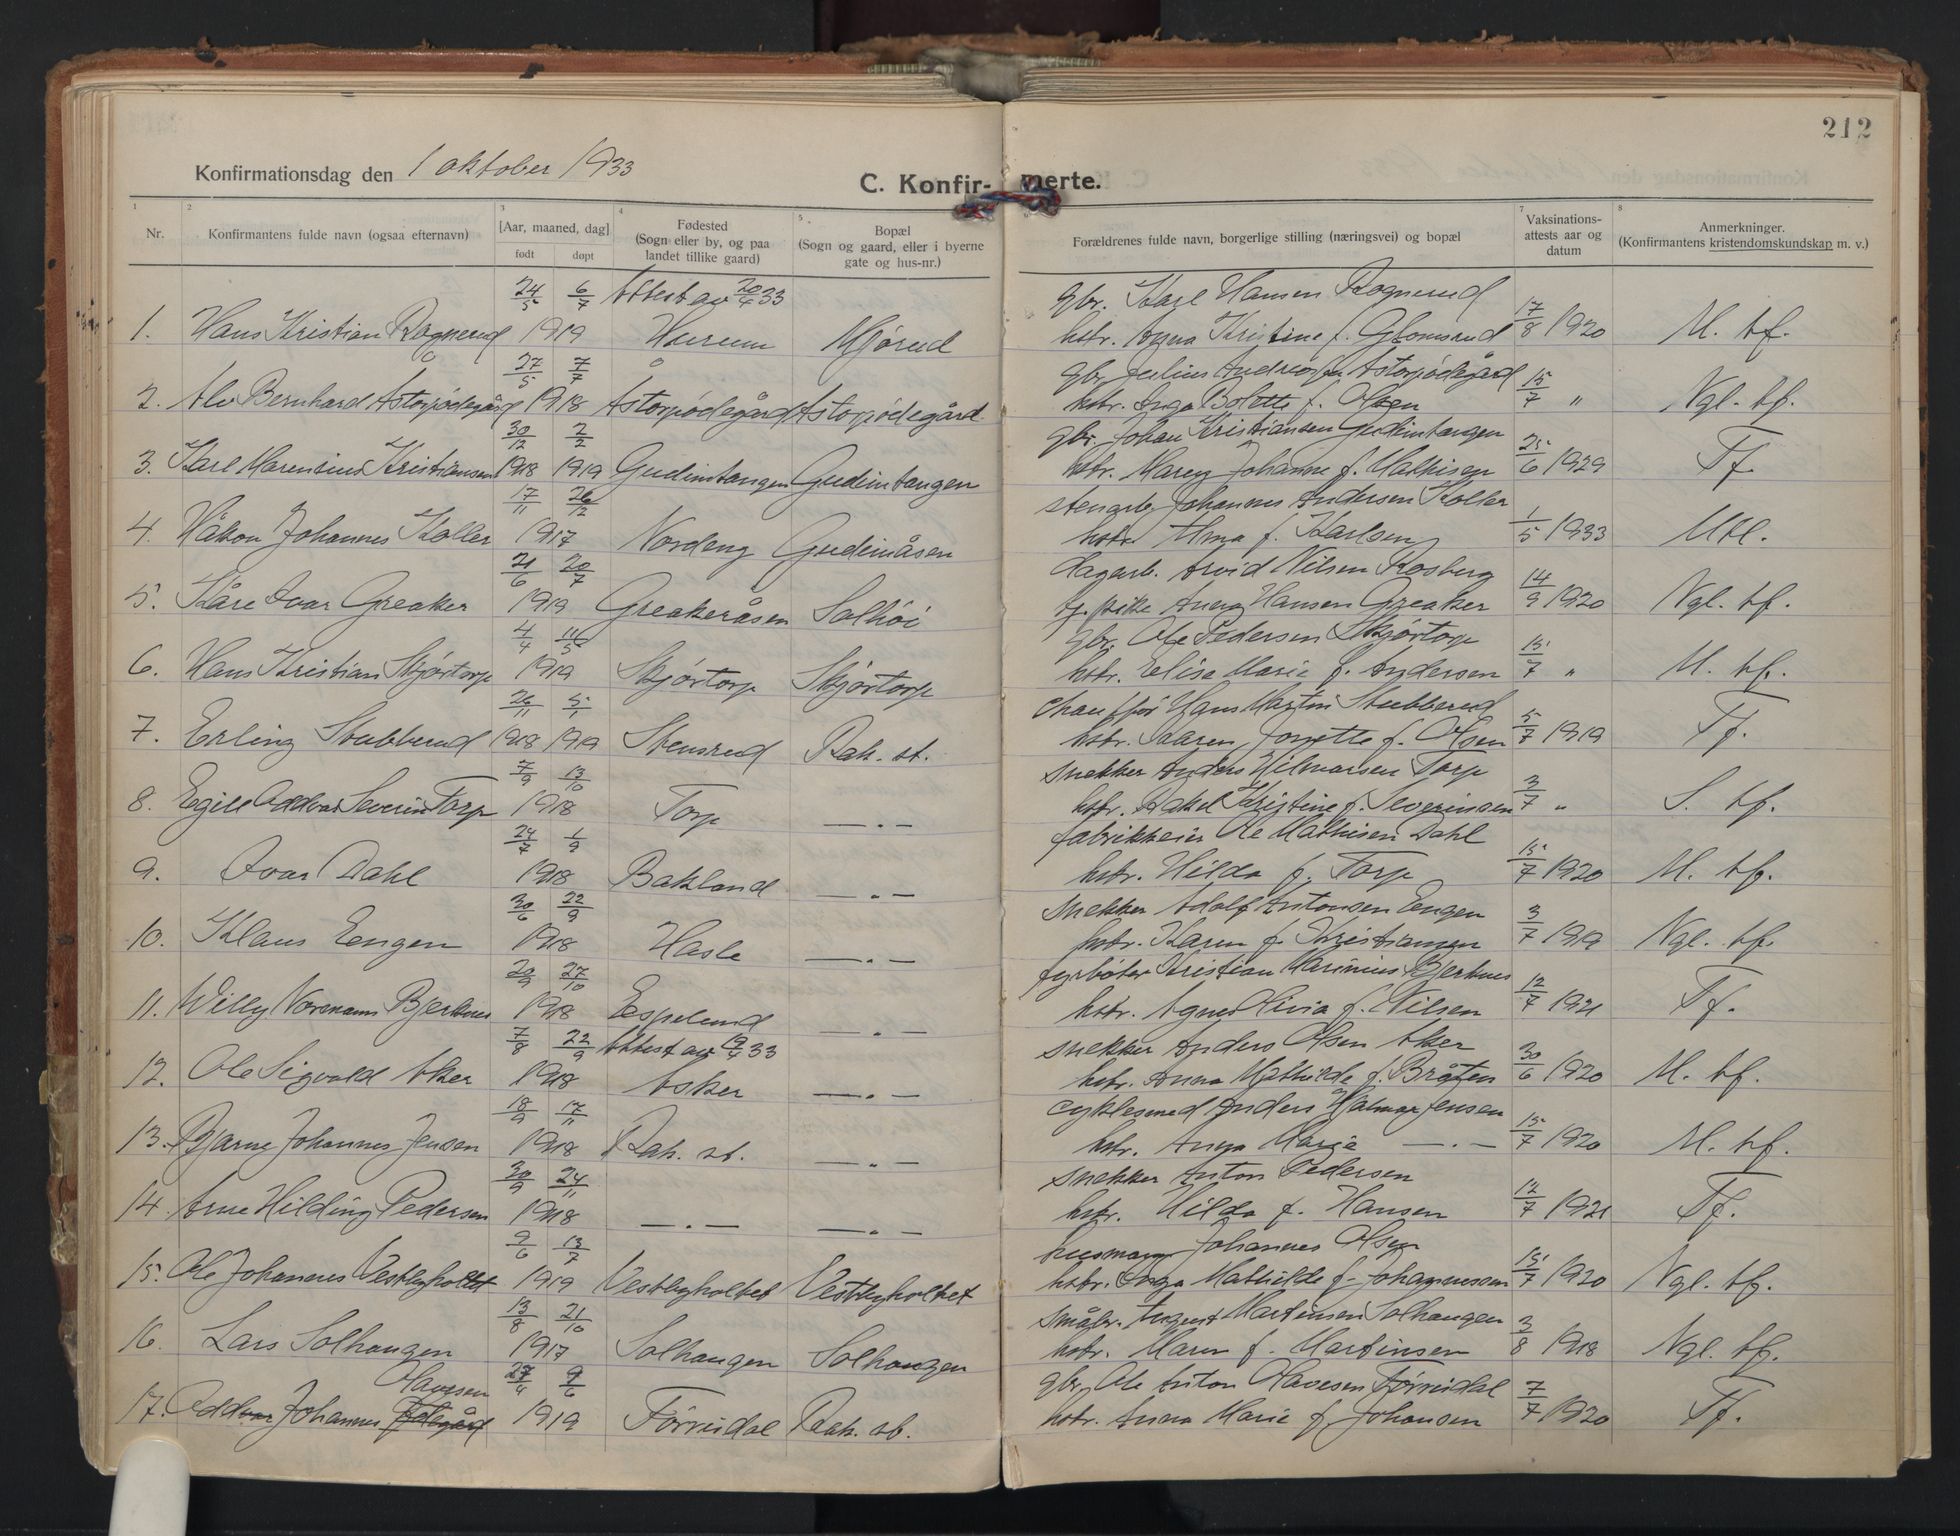 212
Konfirmationsdag den 1 oktober 1933
C. Konfir- merte.
1 2 3 4 5 7 8
Nr. Konfirmantens fulde navn (ogsaa efternavn) [Aar, maaned, dag] født døpt Fødested (Sogn eller by, og paa landet tillike gaard) Bopæl (Sogn og gaard, eller i byerne gate og hus-nr.) Forældrenes fulde navn, borgerlige stilling (næringsvei) og bopæl Vaksinations-attests aar og datum Anmerkninger. (Konfirmantens kristendomskundskap m. v.)
24/5 6/7 Attest av 20/4 33 gbr. Karl Hansen Rognerud
1. Hans Kristian Rognerud 1919 Haerum Mjørud hstr. Anna Kristine f. Glomsrud 17/8 1920 M. tf.
27/5 7/7 gbr. Julius Andreas Astorpødegård
2. Alv Bernhard Åstorpødegård 1918 Åstorpødegård Astorpødegård hstr. Inga Bolette f. Olsen 15/7 " Ngl. tf.
30/12 2/2 gbr. Johan Kristiansen Gudimtangen
3. Karl Marensius Kristiansen 1918 1919 Gudimtangen Gudimtangen hstr. Maren Johanne f. Mathisen 25/6 1929 Tf.
17/11 26/12 stenarb. Johannes Andersen Koller
4. Håkon Johannes Koller 1917 Nordeng Gudimåsen hstr. Alma f. Karlsen 1/5 1933 Mtl.
21/6 20/7 dagarb. Arvid Nilsen Rosberg
5. Kåre Ivar Greaker 1919 Greakeråsen Solhöi tj. pike Anna Hansen Greaker 14/9 1920 Ngl. tf.
4/4 11/5 gbr. Ole Pedersen Skjørtorp
6. Hans Kristian Skjørtorp 1919 Skjørtorp Skjørtorp hstr. Elise Marie f. Andersen 15/7 " M. tf.
26/11 5/1 chauffør Hans Martin Stubberud
7. Erling Stubberud 1918 1919 Stensrud Rak. st. hstr. Kaaren Jonette f. Olsen 5/8 1919 Tf.
7/9 13/10 snekker Anders Hilmarsen Torp
8. Egill Oddvar Severin Torp 1918 Torp — " — hstr. Rakel Kristine f. Severinsen 3/7 " S. tf.
24/7 1/9 fabrikkeier Ole Mathisen Dahl
9. Ivar Dahl 1918 Bakland — " — hstr. Hilda f. Torp 15/7 1920 M. tf.
30/6 22/9 snekker Adolf Antonsen Eengen
10. Klaus Eengen 1918 Hasle — " — hstr. Karen f. Kristiansen 3/7 1919 Ngl. tf.
20/9 27/10 fyrbøter Kristian Marinius Bjerknes
11. Willy Normann Bjerknes 1918 Espelund — " — hstr. Agnes Olivia f. Nilsen 12/7 1921 Tf.
7/8 22/9 Attest av 19/4 33 snekker Anders Olsen Aker
12. Ole Sigvald Aker 1918 Asker — " — hstr. Anna Mathilde f. Bråten 30/6 1920 M. tf.
18/9 17/11 cyklesmed Anders Hjalmar Jensen
13. Bjarne Johannes Jensen 1918 Rak. st. — " — hstr. Anna Marie — " — 15/7 1920 M. tf.
30/9 24/11 snekker Anton Pedersen
14. Arne Hilding Pedersen 1918 — " — — " — hstr. Hilda f. Hansen 12/7 1921 Tf.
9/6 13/7 husmann Johannes Olsen
15. Ole Johannes Vestbyholtet 1919 Vestbyholtet Vestbyholtet hstr. Inga Mathilde f. Johannessen 15/7 1920 Ngl. tf.
13/8 21/10 småbr. August Martinsen Solhaugen
16. Lars Solhaugen 1917 Solhaugen Solhaugen hstr. Maren f. Martinsen 3/8 1918 Ngl. tf.
Olavesen 27/4 9/6 gbr. Ole Anton Olavesen Förrisdal
17. Oddvar Johannes 1919 Förrisdal Rak. st. hstr. Anna Marie f. Johansen 7/7 1920 Tf.